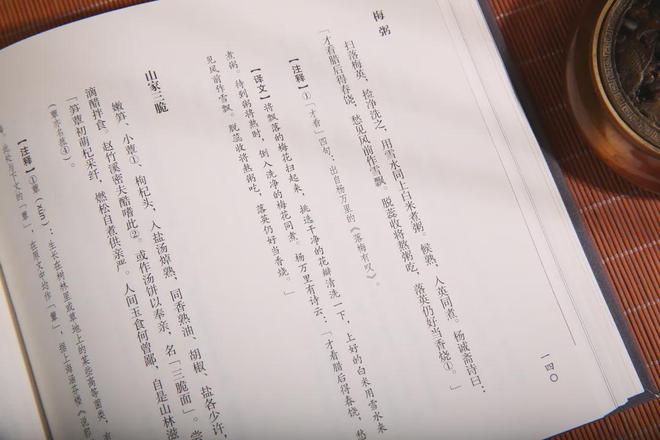 梅粥
扫落梅英，捡净洗之，用雪水同上白米煮粥。候熟，入英同煮。杨诚斋诗曰：
「才看腊后得春饶，愁见风前作雪飘。脱蕊收将熬粥吃，落英仍好当香烧①。」
【注释】①「才看」四句，出自杨万里的《落梅有叹》。
【译文】将飘落的梅花扫起来，挑选干净的花瓣清洗一下，上好的白米用雪水来
煮粥。待到粥将熟时，倒入洗净的梅花同煮。杨万里有诗云：「才看腊后得春饶，愁
见风前作雪飘。脱蕊收将熬粥吃，落英仍好当香烧。」
山家三脆
嫩笋、小蕈①、枸杞头，入盐汤焯熟，同香熟油、胡椒、盐各少许，
滴醋拌食。赵竹溪密夫酷嗜此②。或作汤饼以奉亲，名「三脆面」。尝
「笋蕈初萌杞采纤，燃松自煮供亲严。人间玉食何曾鄙，自是山林滋
（蕈亦名菰③）。
【注释】①蕈（xùn）：生长在树林里或草地上的某些高等菌类，
此处与下文的「蕈」，在原文中均作「
一四〇